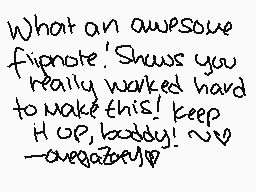 What an awesome
flipnote! Shows you
really worked hard
to make this! Keep
it up, buddy! ~♡
—omegaZoey♡